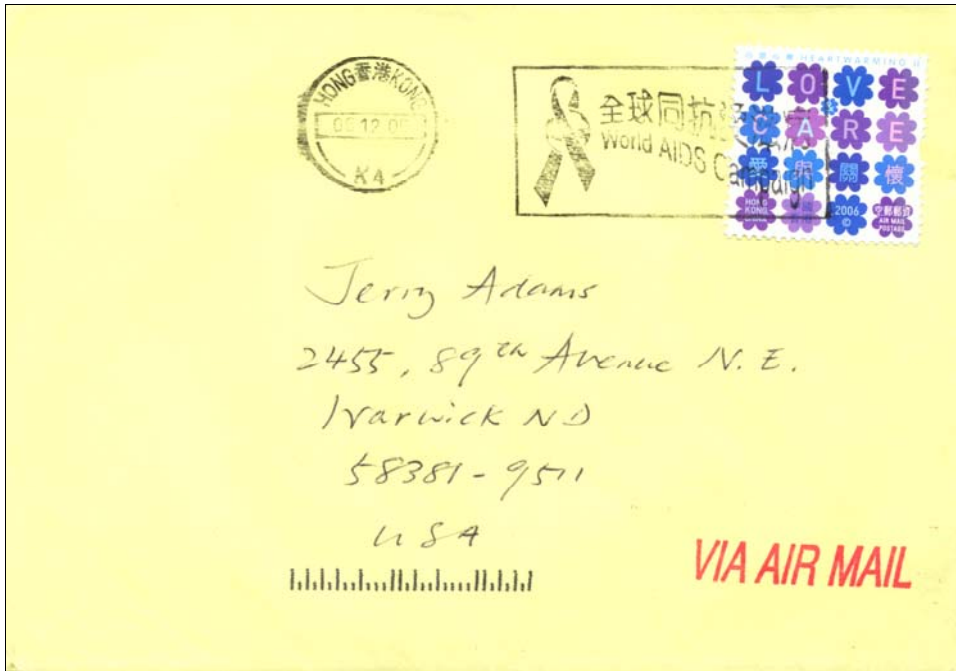 HONG 香港 KONG
12
K4
全球同抗
World AIDS Campaign
小意心集 HEARTWARMING II
LOVE
CARE
愛與關懷
HONG KONG
2006
©
空郵郵資
AIR MAIL
POSTAGE
Jerry Adams
2455, 89th Avenue N.E.
Warwick ND
58381-9511
USA
VIA AIR MAIL